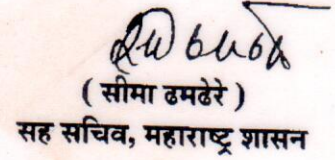 ( सीमा ढमढेरे )
सह सचिव, महाराष्ट्र शासन